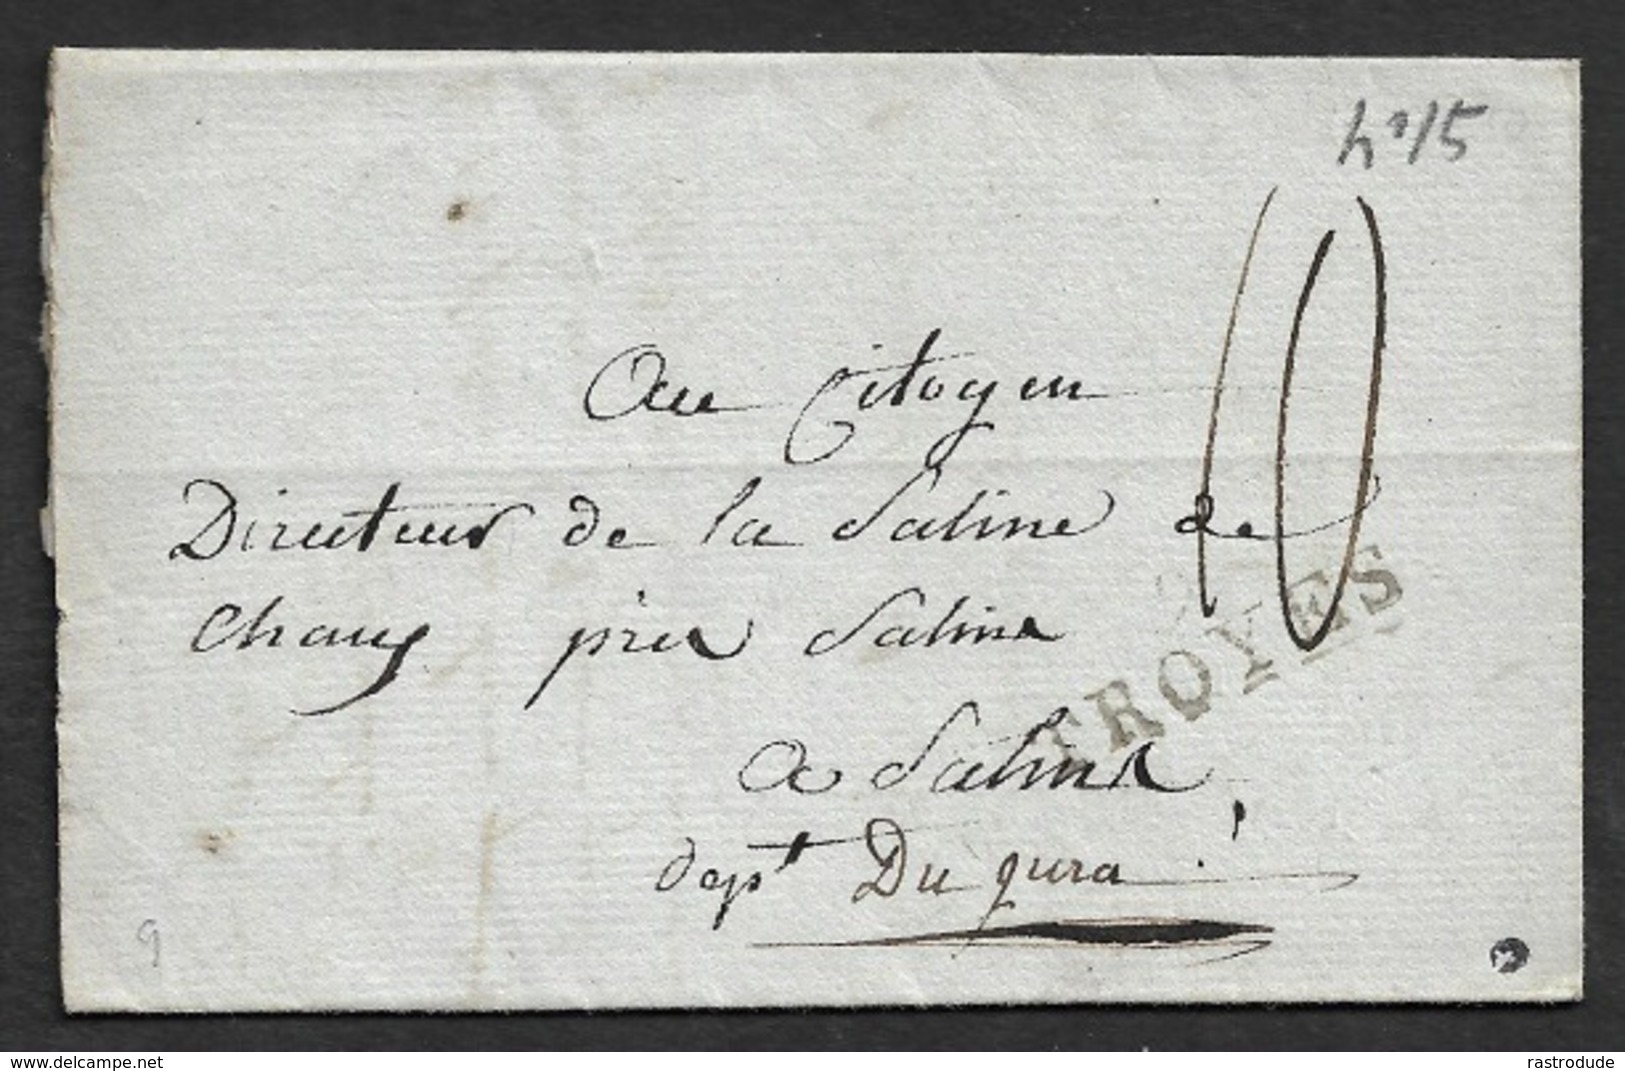 10
Au Citoyen
Directeur de la Saline de
Chaux près Salins
TROYES
a Salins
dept Du Jura
9
www.delcampe.net
rastrodude